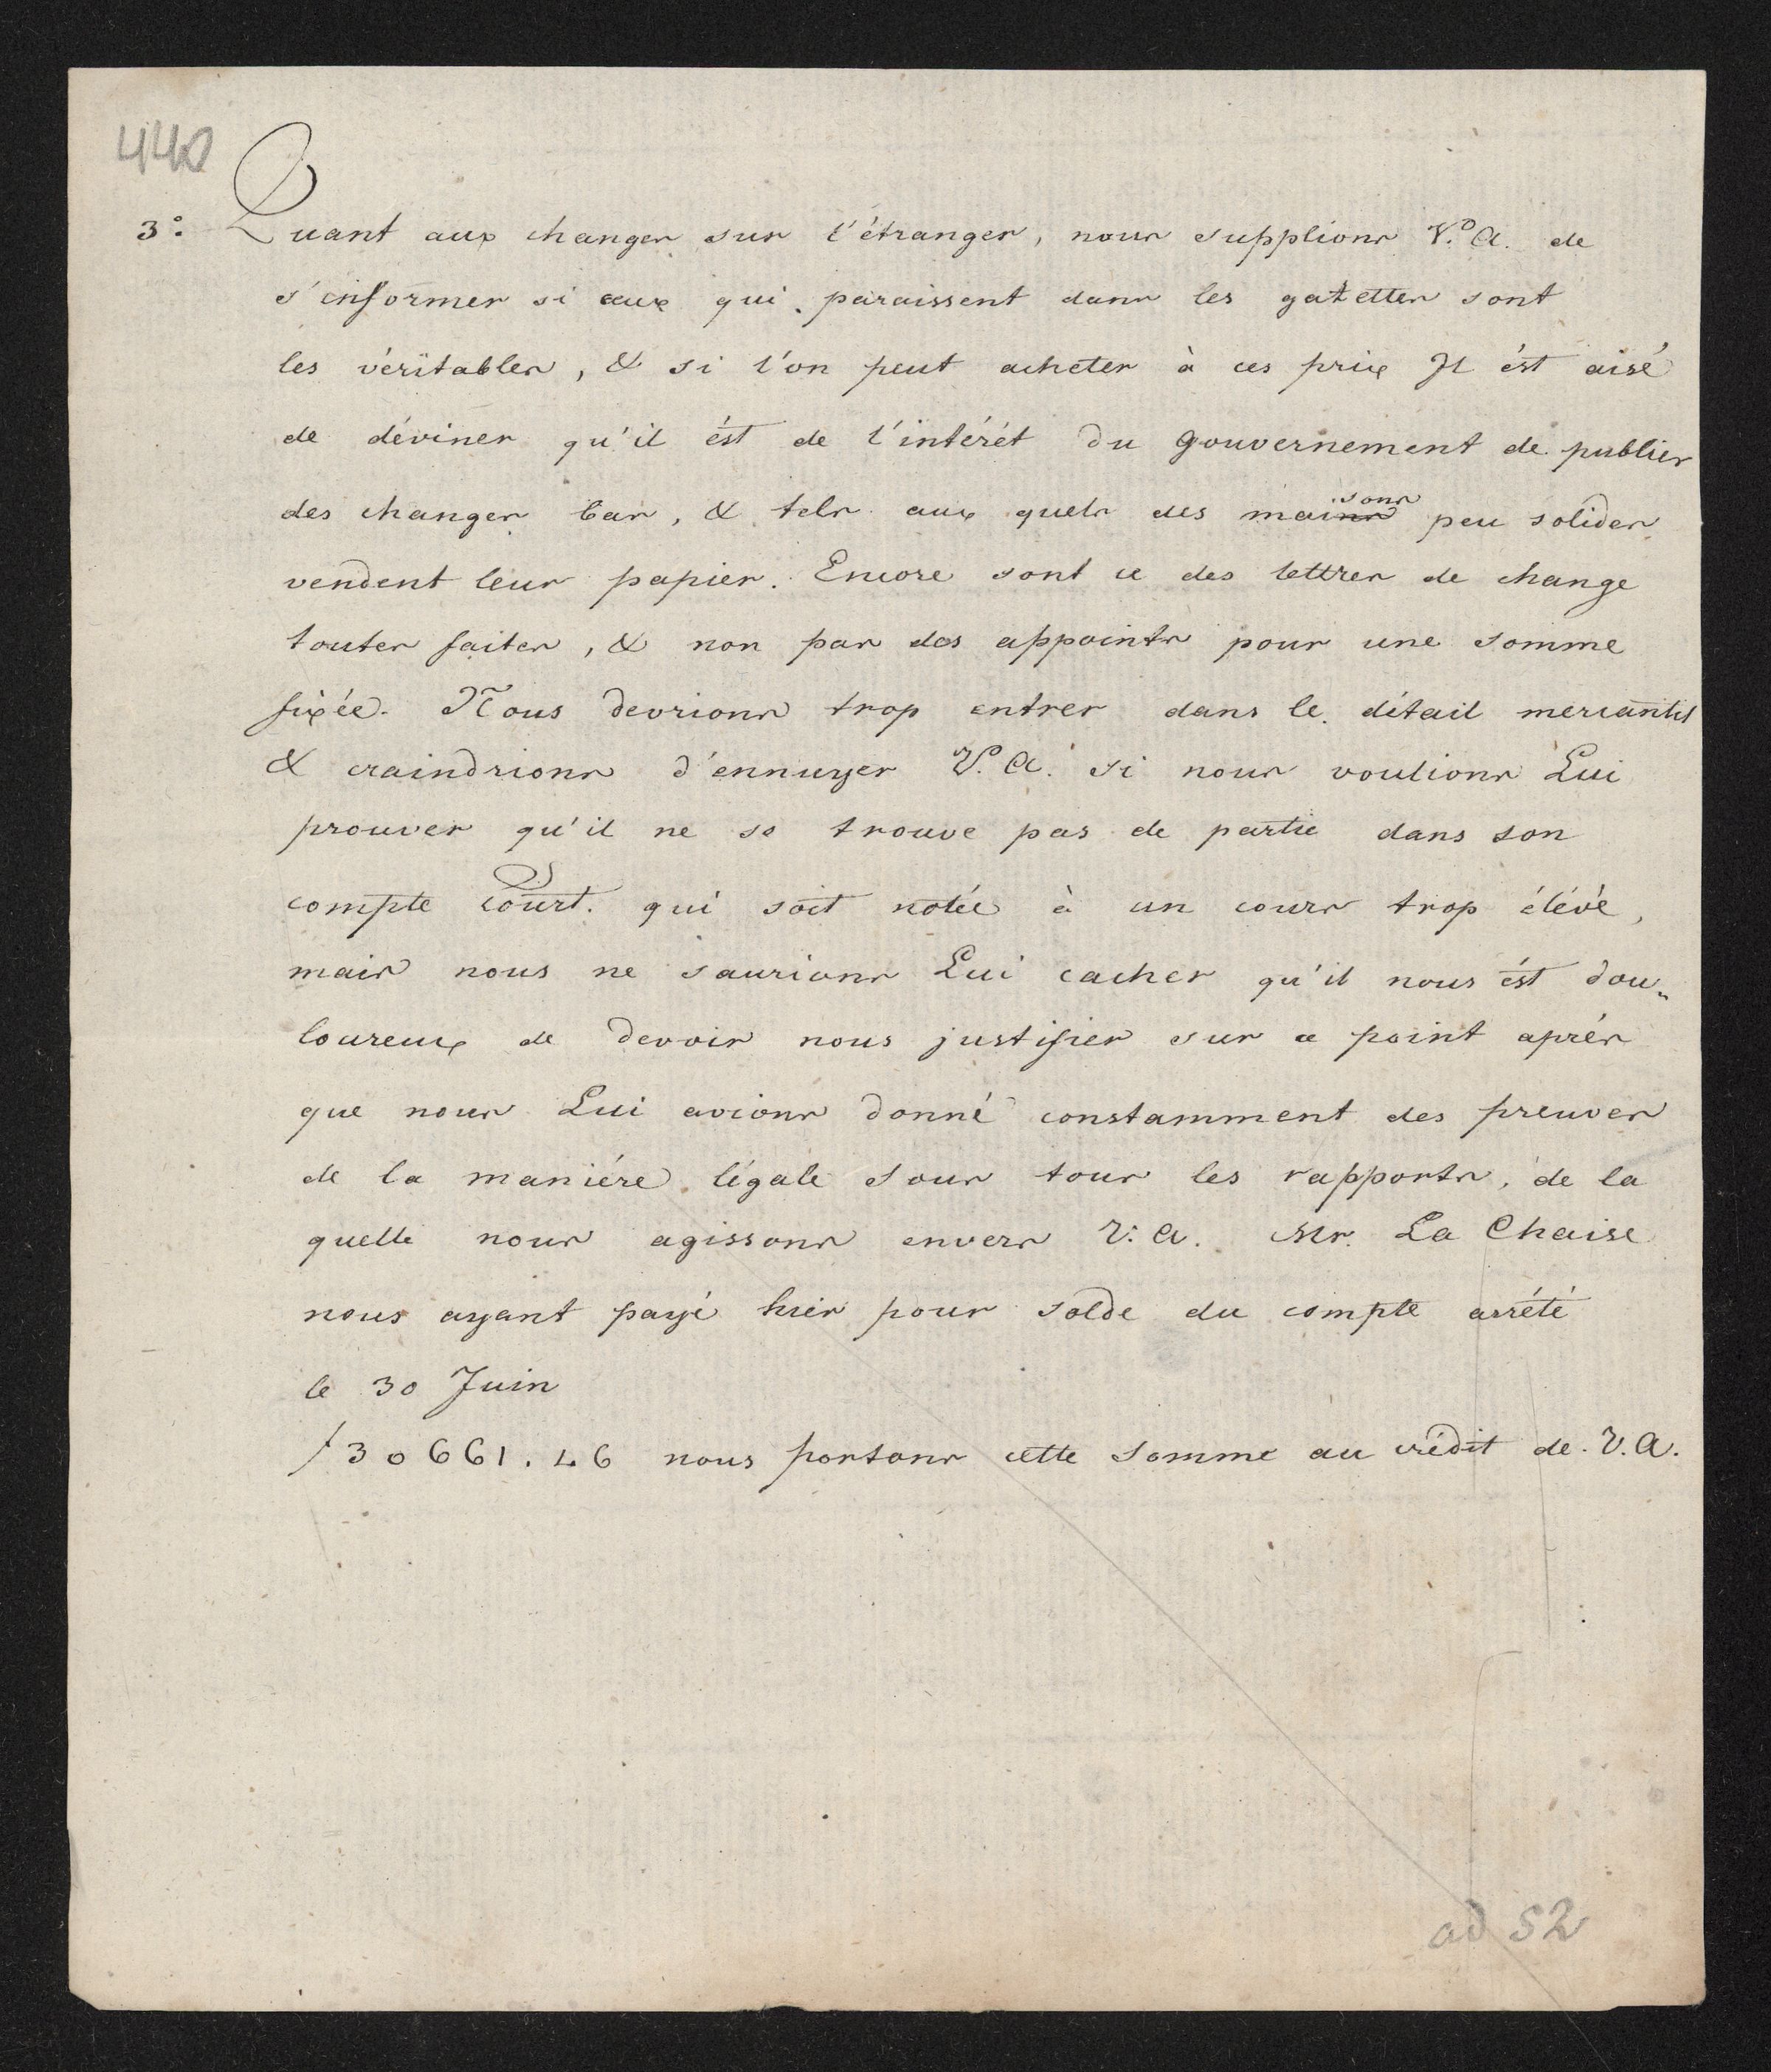 440
3.° Quant aux changes sur l'étranger, nous supplions V. A. de
s'informer si ceux qui paraissent dans les gazettes sont
les véritables, & si l'on peut acheter à ces prix Il ést aisé
de déviner qu'il ést de l'intérét du gouvernement de publier
des changes bas, & tels aux quels des maisons peu solides
vendent leur papier. Encore sont ce des lettres de change
toutes faites, & non pas des appoints pour une somme
fixée. Nous devrions trop entrer dans le détail mercantil
& craindrions d'ennuyer V. A. si nous voulions Lui
prouver qu'il ne se trouve pas de partie dans son
compte Court. qui soit notée à un cours trop élévé,
mais nous ne saurions Lui cacher qu'il nous ést dou„
loureux de devoir nous justifier sur ce point aprés
que nous Lui avions donné constamment des preuves
de la maniére légale sous tous les rapports, de la
quelle nous agissons envers V. A. Mr. La Chaise
nous ayant payé hier pour solde du compte arrété
le 30 Juin
f 30661.46 nous portons cette somme au crédit de V. A.
ad 52